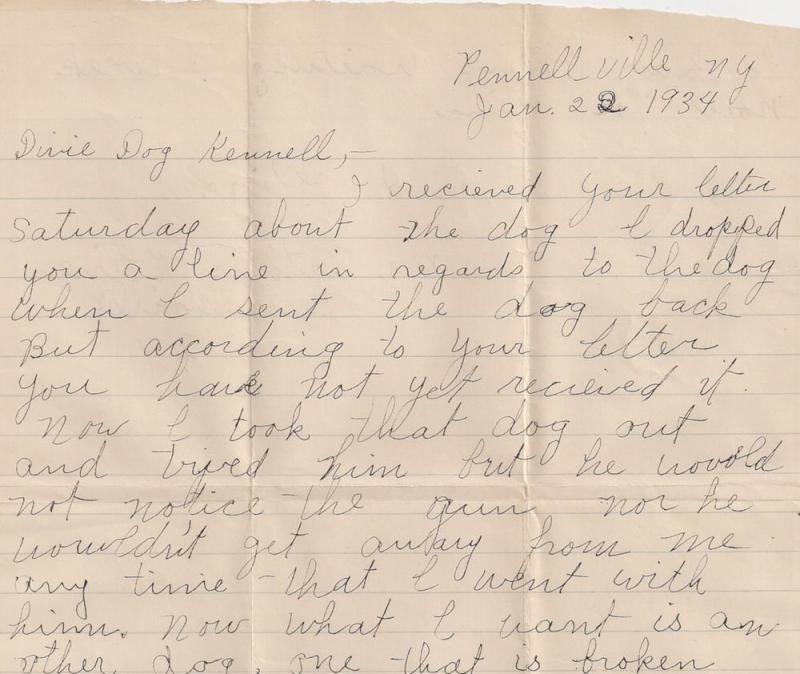 Pennellville NY
Jan. 22 1934
Dixie Dog Kennell,—
I recieved your letter
Saturday about the dog I dropped
you a line in regards to the dog
when I sent the dog back
But according to your letter
you have not yet recieved it.
Now I took that dog out
and tryed him but he would
not notice the gun nor he
wouldn't get away from me
any time that I went with
him. Now what I want is an
other dog, one that is broken